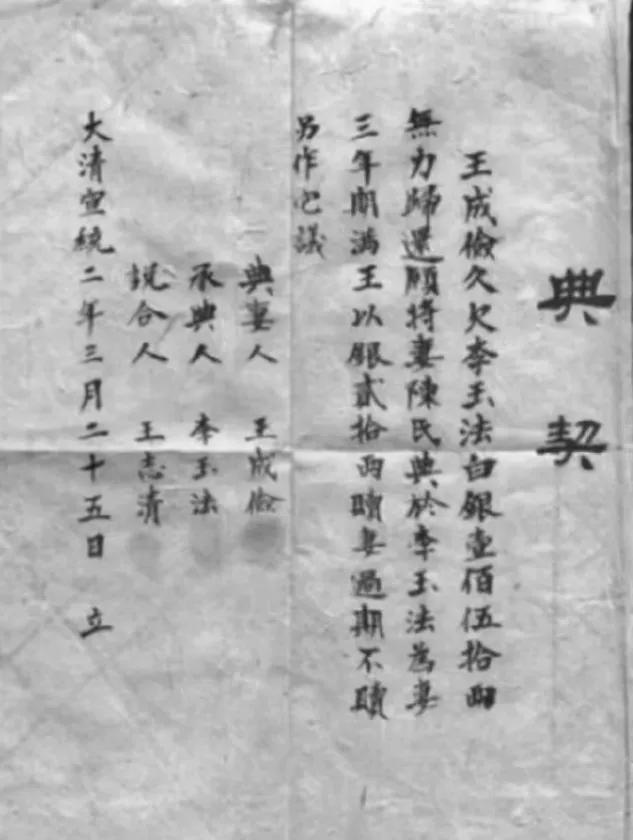 典契
王成儉久欠李玉法白銀壹佰伍拾兩
無力歸還願將妻陳民典於李玉法為妻
三年期滿王以銀貳拾兩贖妻過期不贖
另作它議
典妻人 王成儉
承典人 李玉法
說合人 王志清
大清宣統二年三月二十五日 立